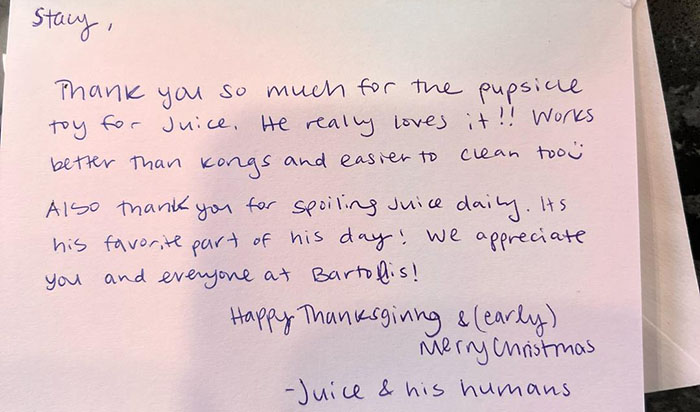 Stacy,
Thank you so much for the pupsicle
toy for Juice. He really loves it!! Works
better than kongs and easier to clean too
Also thank you for spoiling Juice daily. Its
his favorite part of his day! We appreciate
you and everyone at Bartolis!
Happy Thanksginng & (early)
Merry Christmas
-Juice & his humans